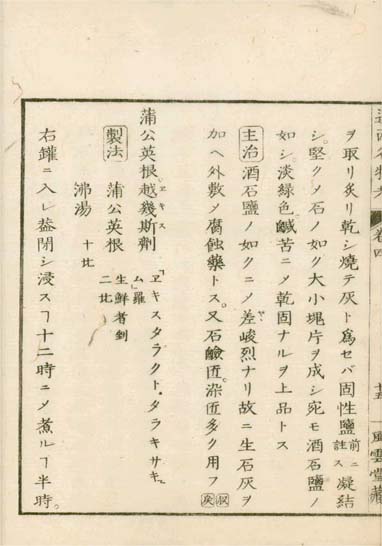 遠西名物考 卷四 十五 風雲堂藏
ヲ取リ炙リ乾シ燒テ灰ト爲セバ固性鹽前ニ註ス凝結
シ堅クメ石ノ如ク大小塊片ヲ成シ宛モ酒石鹽ノ
如シ淡綠色鹹苦ニメ乾固ナルヲ上品トス
主治 酒石鹽ノ如クニメ差峻烈ナリ故ニ生石灰ヲ
加ヘ外敷ノ腐蝕藥トス。又石鹼匠。染匠多ク用フ
蒲公英根。越幾斯劑「ヱキスタラクト・タラキサキュム」羅
製法 蒲公英根生鮮者剉二ヒ
沸湯 十ヒ
右鑵ニ入レ葢閉シ浸スヿ十二時ニメ煮ルヿ半時。